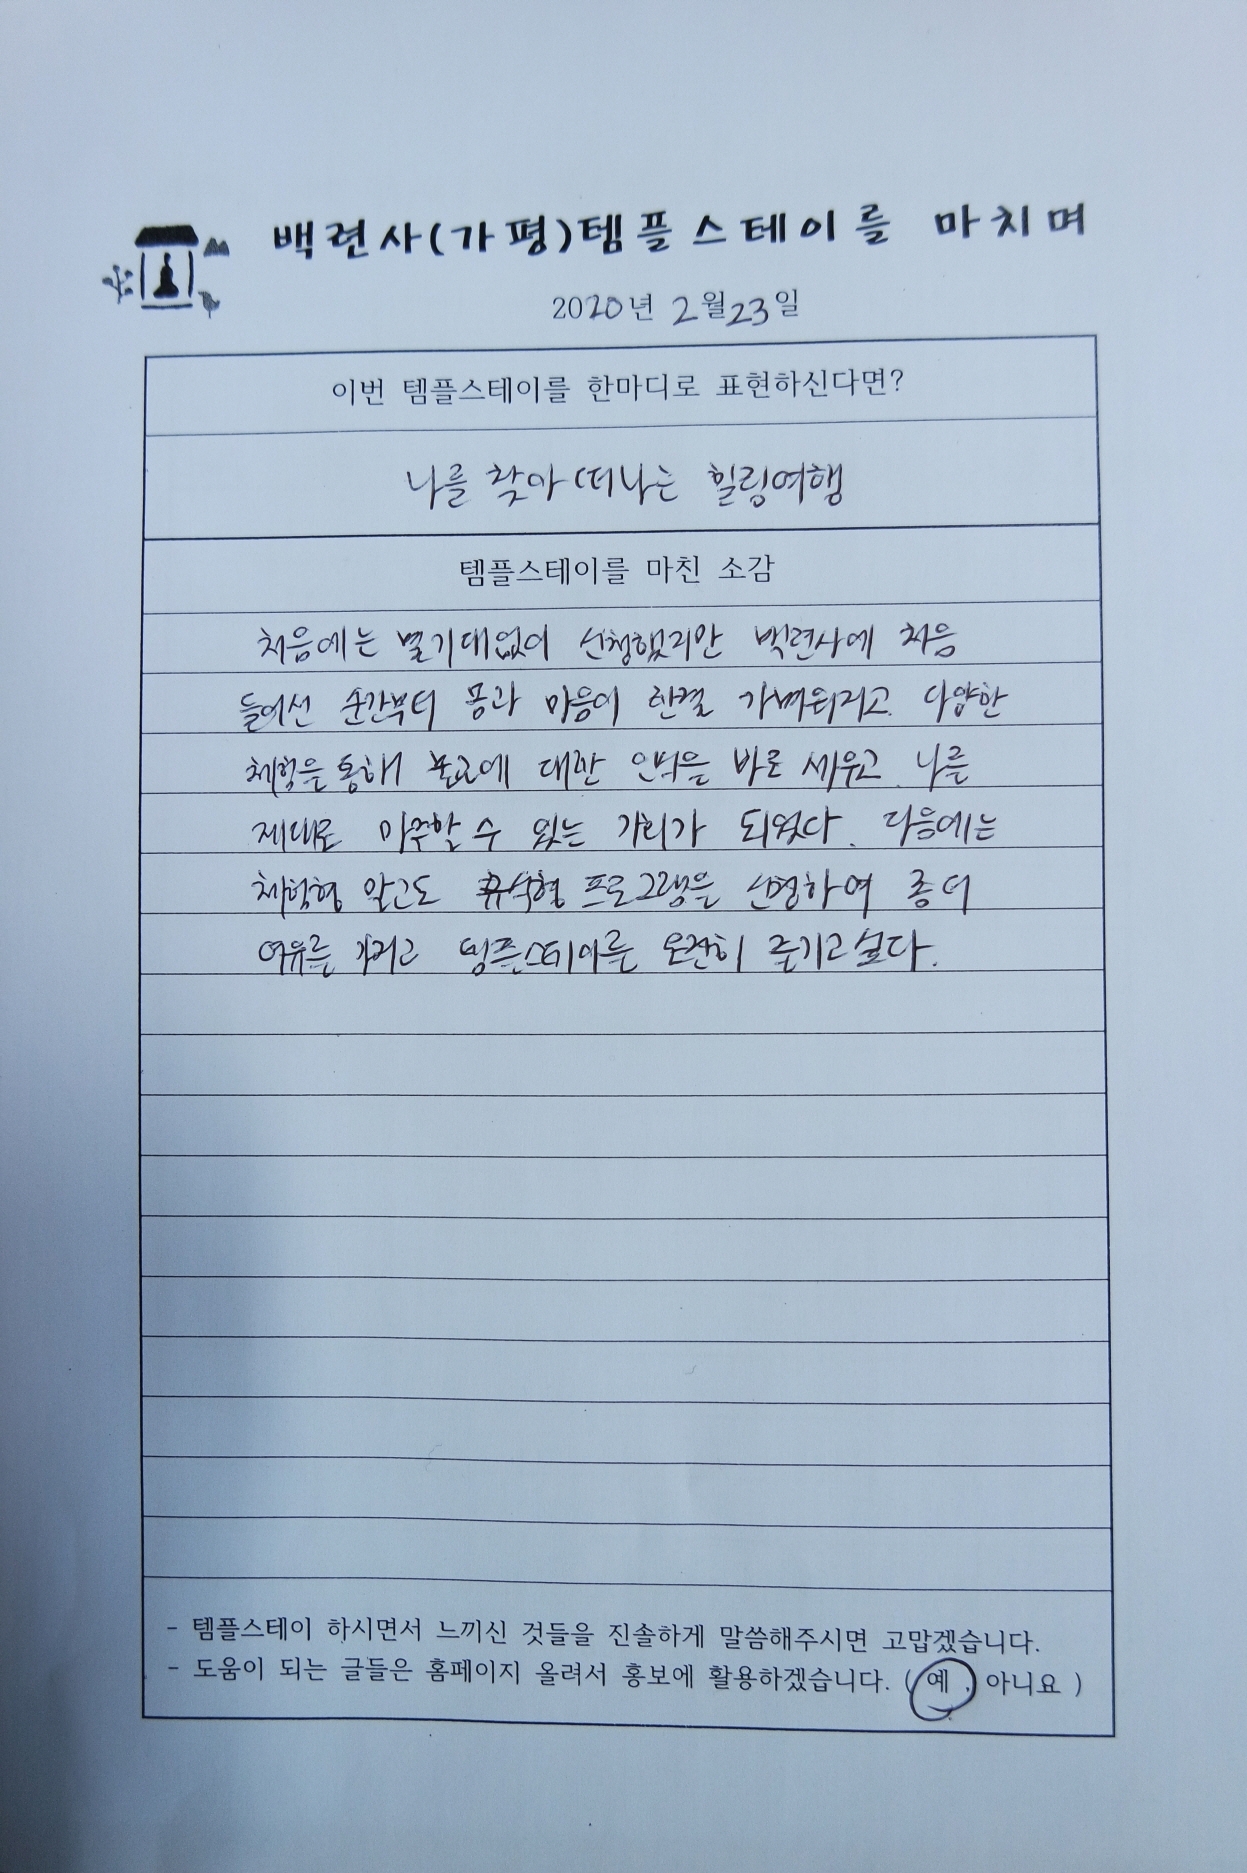 백련사(가평)템플스테이를 마치며
2020년 2월23일
이번 템플스테이를 한마디로 표현하신다면?
나를 찾아 떠나는 힐링여행
템플스테이를 마친 소감
처음에는 별기대없이 신청했지만 백련사에 처음
들어선 순간부터 몸과 마음이 한결 가벼워지고 다양한
체험을 통해 불교에 대한 인식을 바로 세우고 나를
제대로 마주할 수 있는 자리가 되었다. 다음에는
체험형 말고도 휴식형 프로그램을 신청하여 좀 더
여유를 가지고 템플스테이를 온전히 즐기고싶다.
- 템플스테이 하시면서 느끼신 것들을 진솔하게 말씀해주시면 고맙겠습니다.
- 도움이 되는 글들은 홈페이지 올려서 홍보에 활용하겠습니다. ( 예 , 아니요 )